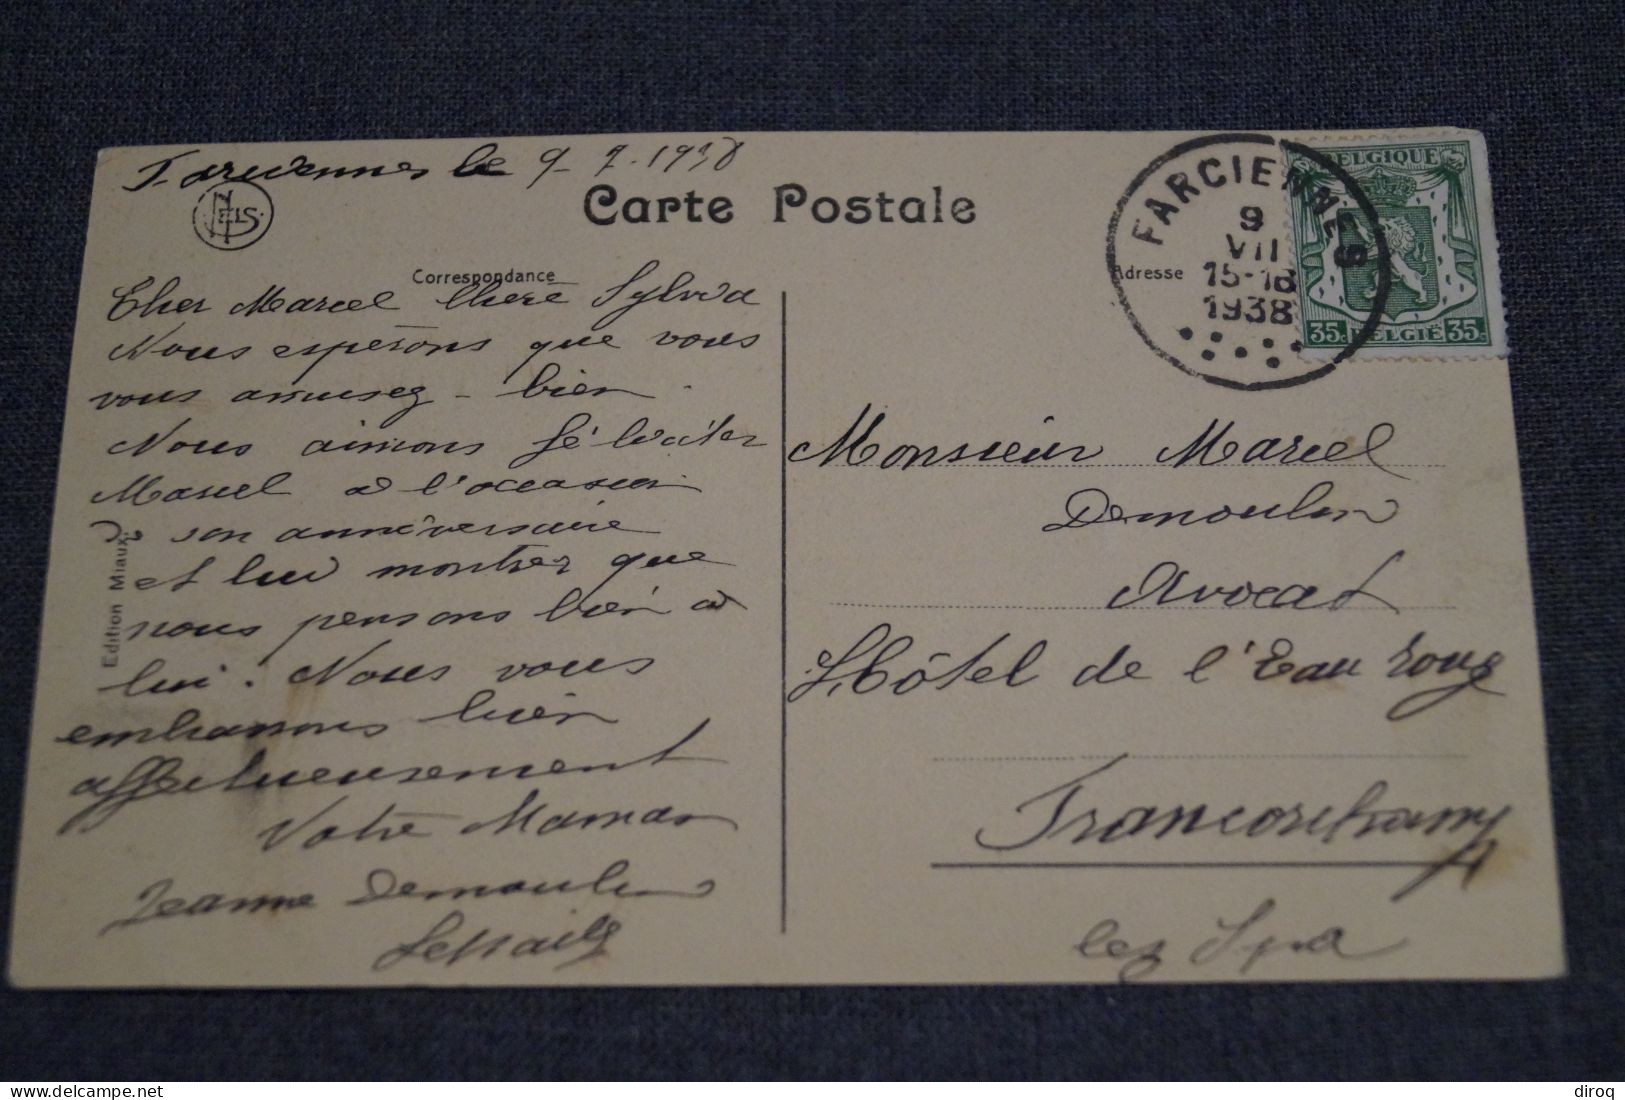 Farciennes le 9-7-1938
NELS
Carte Postale
Correspondance
Cher Marcel Chère Sylvia
Nous espérons que vous
vous amusez - bien
Nous aimons féliciter
Marcel à l'occasion
de son anniversaire
et lui montrer que
nous pensons bien à
lui. Nous vous
embrassons bien
affectueusement
Votre Maman
Jeanne Demoulin
Edition Miaux
FARCIENNES
9
VII
15-18
1938
BELGIQUE
35c BELGIË 35c
Adresse
Monsieur Marcel
Demoulin
Avocat
Hôtel de l'Eau rouge
Francorchamps
lez Spa
diroq